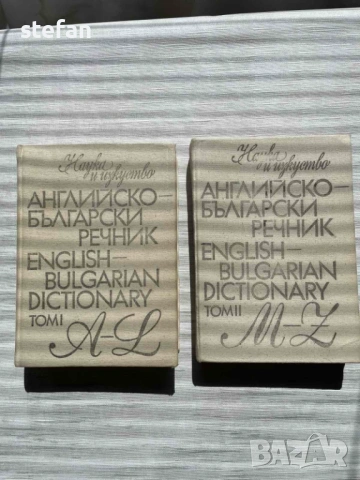 stefan
Наука
и изкуство
АНГЛИЙСКО-
БЪЛГАРСКИ
РЕЧНИК
ENGLISH-
BULGARIAN
DICTIONARY
ТОМ I
A-L
Наука
и изкуство
АНГЛИЙСКО-
БЪЛГАРСКИ
РЕЧНИК
ENGLISH-
BULGARIAN
DICTIONARY
ТОМ II
M-Z
BAZAR